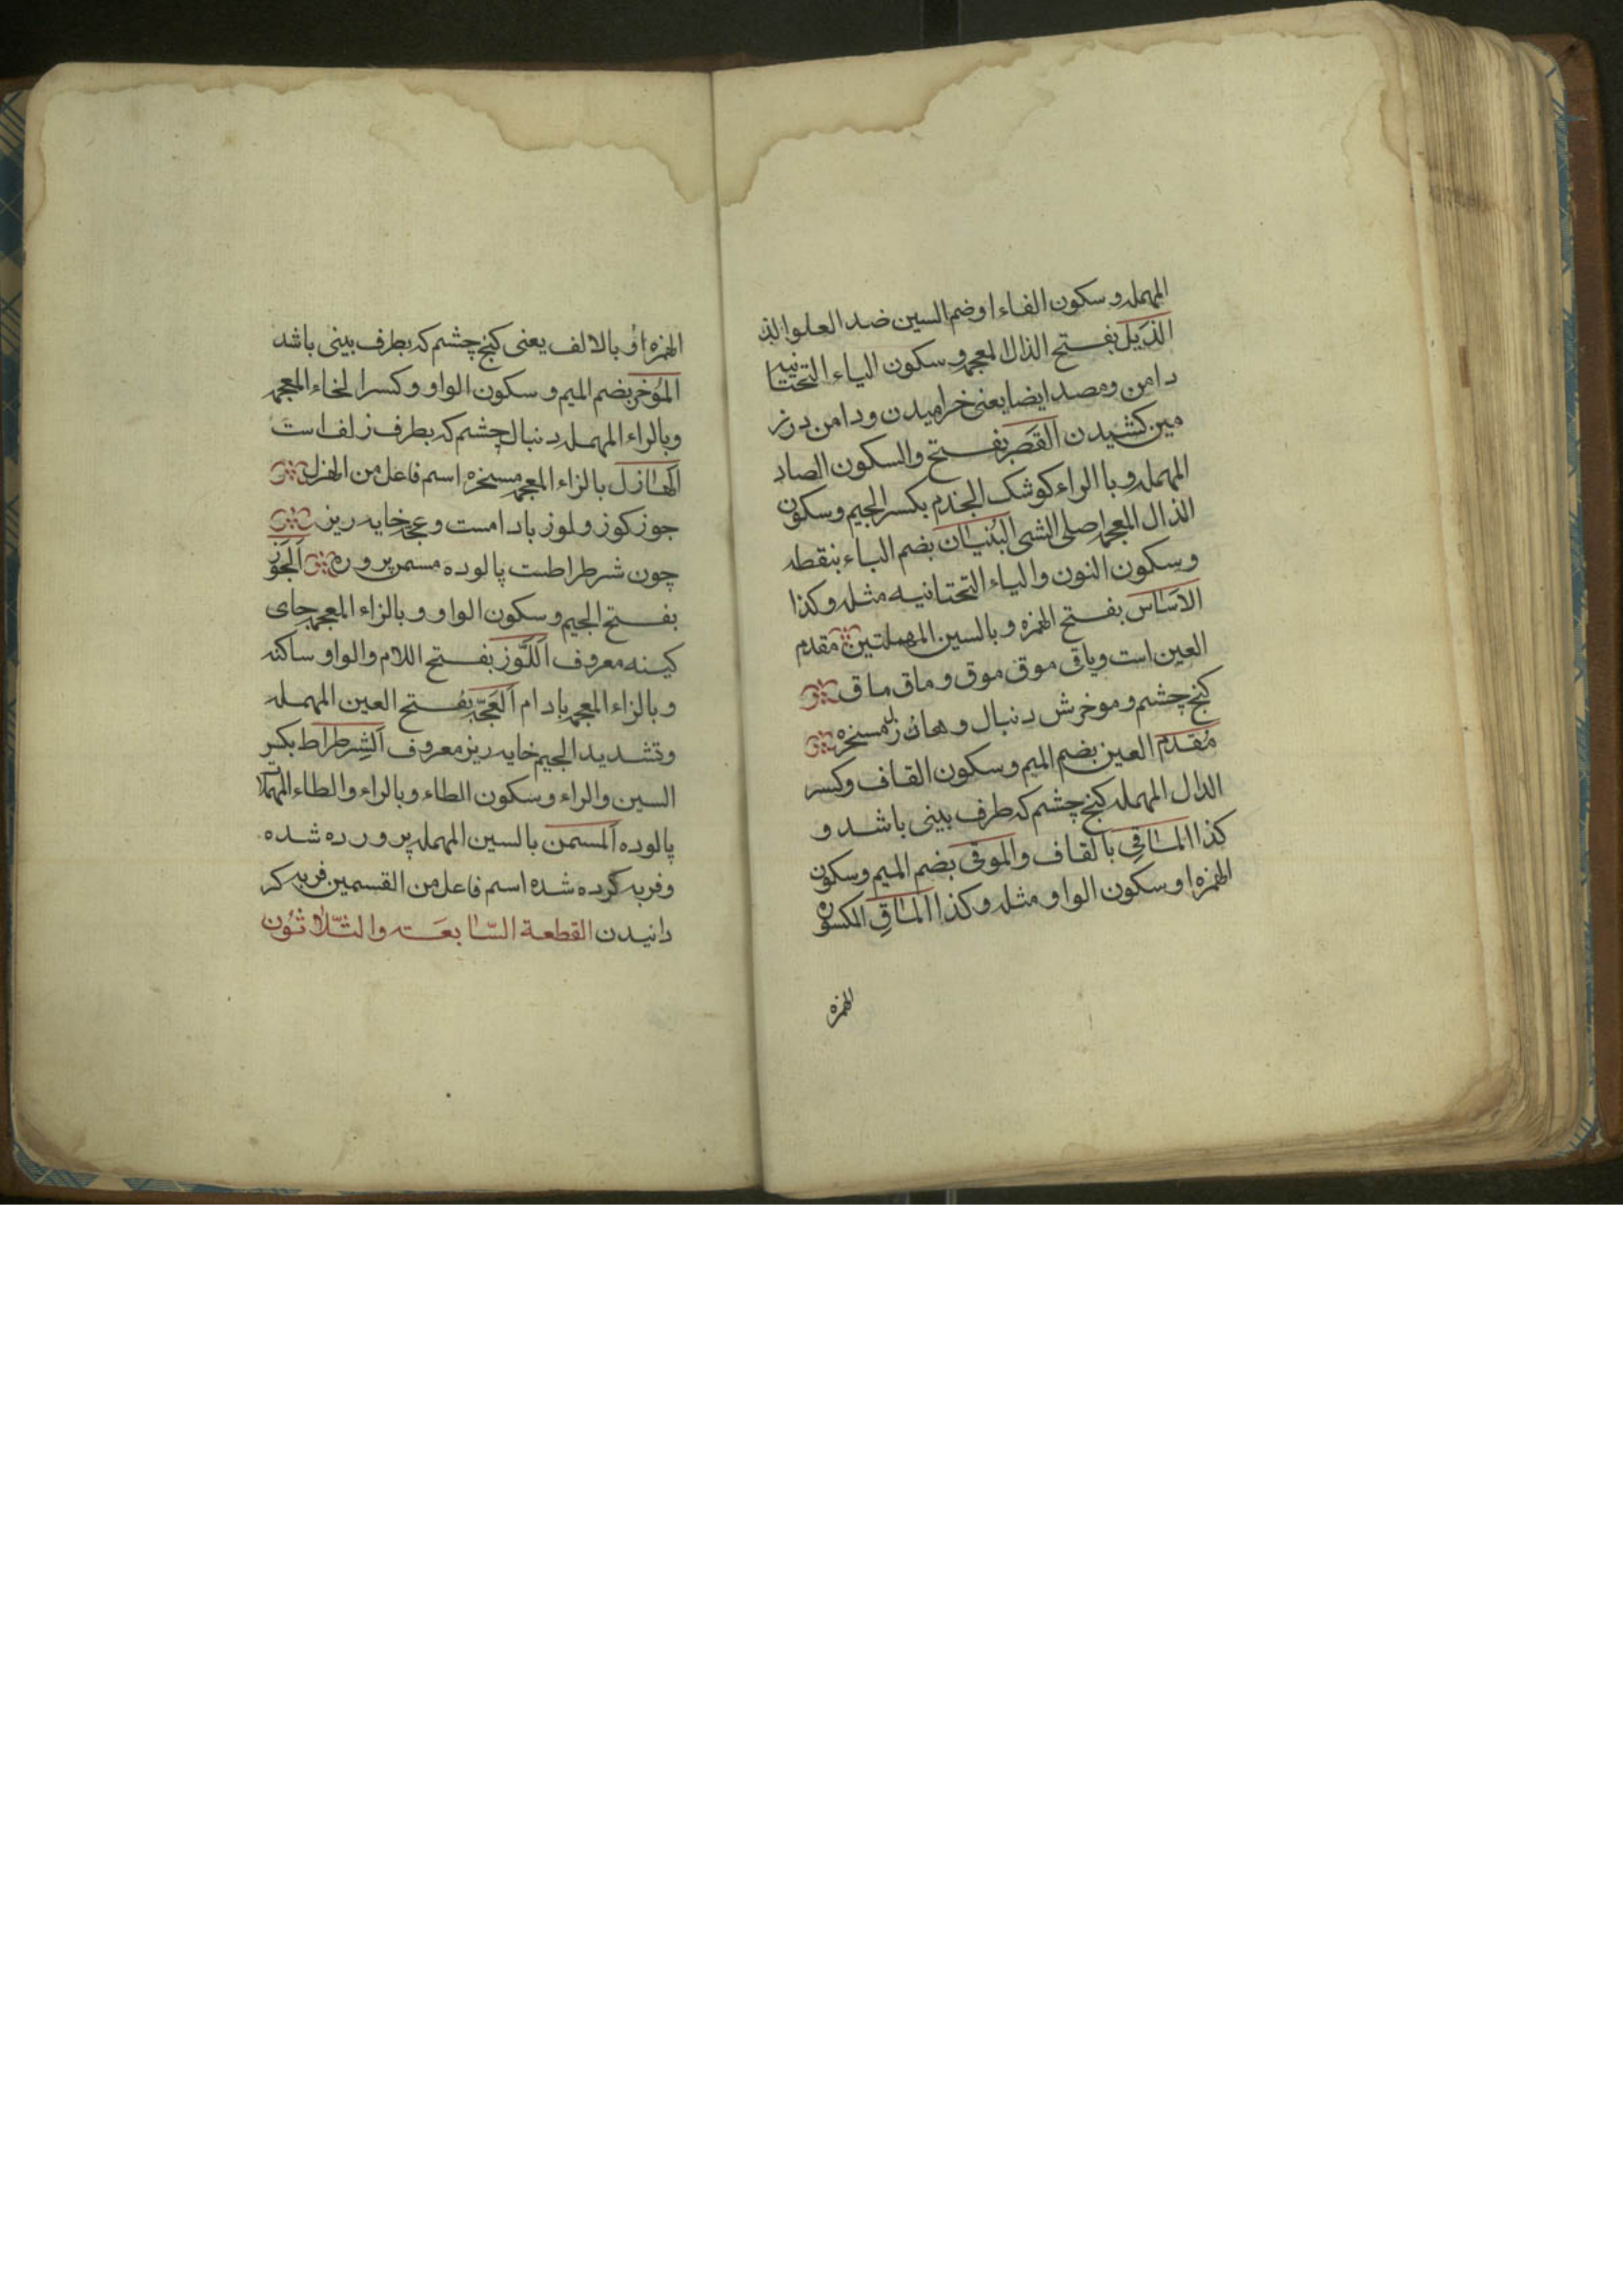 المهمله و سکون الفاء او ضم السین ضد العلو الذ
الذَیل بفـتح الذال المعجمه و سکون الیاء التحتانیه
دامن ومصدر ایضا یعنی خرامیدن و دامن در ز
مین کشیدن القَصَر بفـتح والسکون الصاد
المهمله و با الراء کوشک الجذم بکسر الجیم وسکون
الذال المعجمه اصلی الشی البُنیَان بضم الباء بنقطه
وسکون النون والیاء التحتانیه مثله وکذا
الاَسَاس بفـتح الهمزه و بالسین المهملتین مقدم
العین است وباقی موق موق و ماق ماق
کنج چشم و موخرش دنبال و هازل مسخره
مُقدَم العین بضم المیم وسکون القاف وکسر
الدال المهمله کنج چشم که طرف بینی باشد و
کذا المَاقِی بالقاف والموقی بضم المیم وسکون
الهمزه او سکون الواو مثله وکذا المَاقِ المکسوره
الهمزه
الهمزه او بالالف یعنی کنج چشم که بطرف بینی باشد
المُؤخر بضم المیم و سکون الواو وکسر الخاء المعجمه
وبالراء المهمله دنبال چشم که بطرف زلف است
الهَازل بالزاء المعجمه مسخره اسم فاعل من الهزل
جوز کوز و لوز بادامست و عجه خایه ریز
چون شرطراطست پالوده مسمن پروره اَلجَوز
بفـتح الجیم و سکون الواو و بالزاء المعجمه جای
کینه معروف اَللَّوز بفـتح اللام والواو ساکنه
و بالزاء المعجمه بادام اَلعَجّه بفـتح العین المهمله
وتشدید الجیم خایه ریز معروف اَلشِرطراط بکسر
السین والراء وسکون الطاء وبالراء والطاء المهملا
پالوده اَلمسمن بالسین المهمله پرورده شده
وفربه کرده شده اسم فاعل من القسمین فربه کر
دانیدن القطعة السّابعَـه والثّلاثُون